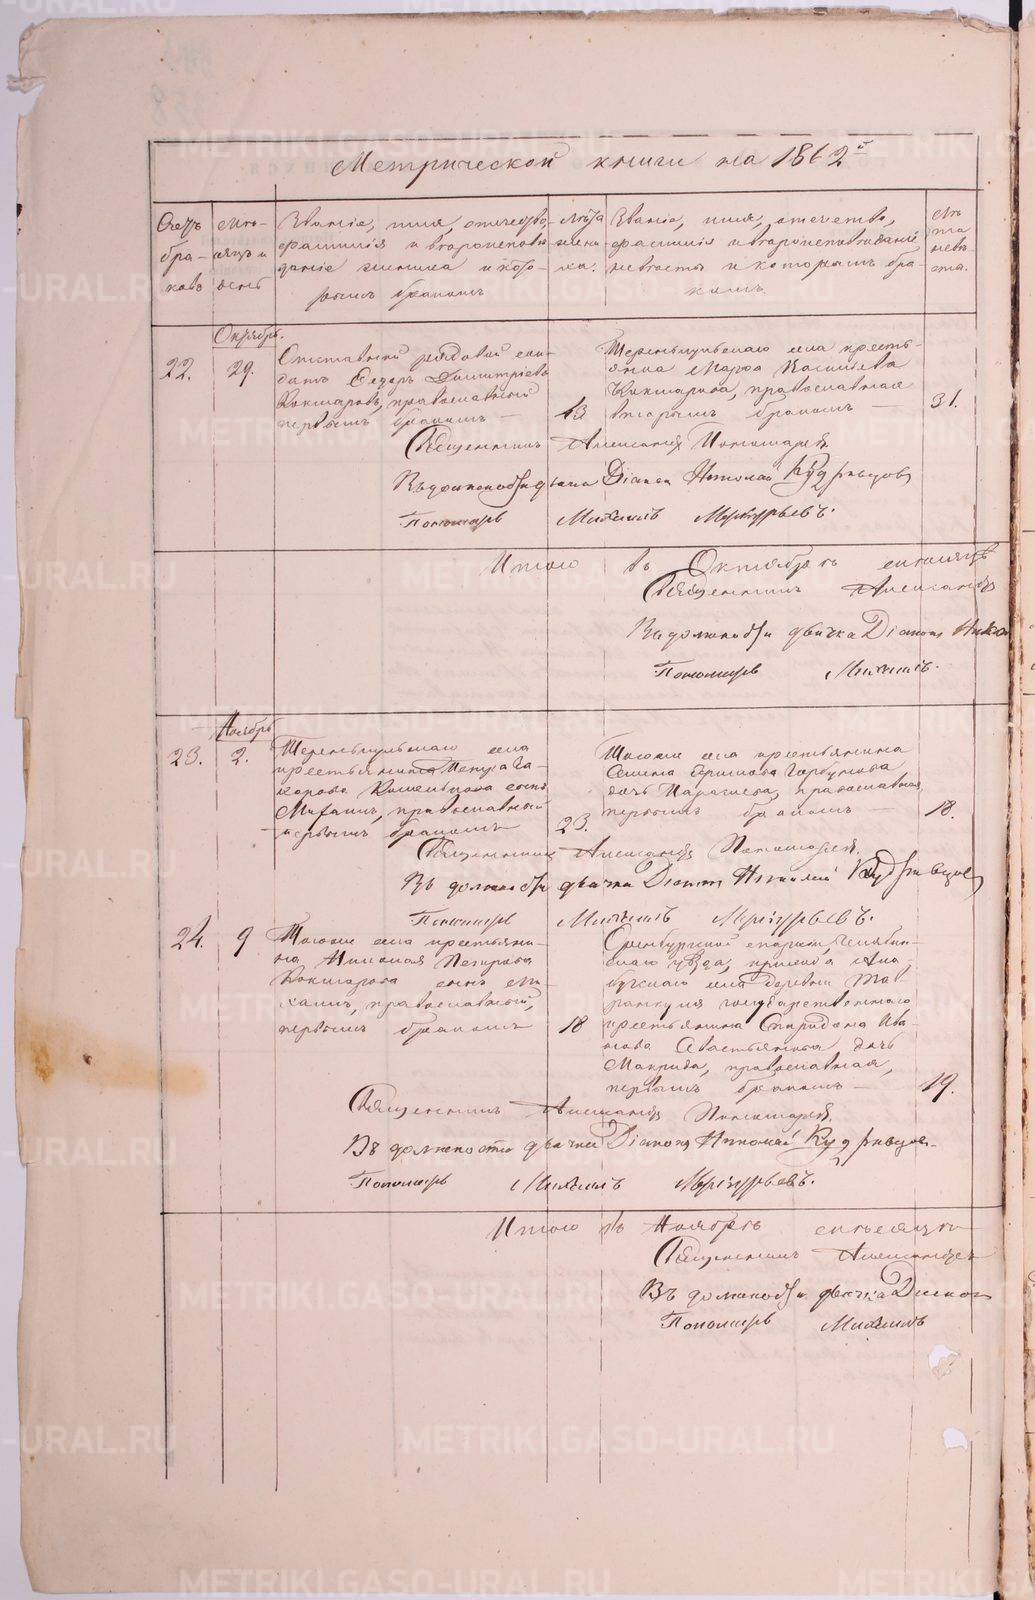 Метрической книги на 1862й
Счетъ бра-ковъ
Мѣ-сяцъ и день
Званіе, имя, отчество, фамилія и вѣроисповѣданіе жениха и кото-рымъ бракомъ
Лѣта жени-ха.
Званіе, имя, отечество, фамилія и вѣроисповѣданіе невѣсты и которымъ бра-комъ
Лѣ-та невѣ-сты.
Октябрь.
22.
29.
Отставный рядовой сол-
датъ Ѳедоръ Димитріевъ
Кокшаровъ, православный
первымъ бракомъ —
43
села кресть-
янка Марѳа Васильева
Кокшарова, православная
вторымъ бракомъ —
31.
Священникъ Александръ Пономаревъ
Въ должности дьячка Діаконъ Николай Кудрявцовъ
Пономарь Михаилъ Меркурьевъ.
Итого въ Октябрѣ мѣсяцѣ
Священникъ Александръ
Въ должности дьячка Діаконъ Нико
Пономарь Михаилъ.
Ноябрь
23.
2.
села
крестьянина Петра За-
харова сынъ
Михаилъ, православный
первымъ бракомъ
23.
Тогоже села крестьянина
Горбунова
дочь Параскева, православная
первымъ бракомъ —
18.
Священникъ Александръ Пономаревъ.
Въ должности дьячка Діаконъ Николай Кудрявцовъ
Пономарь Михаилъ Меркурьевъ.
24.
9
Тогоже села крестьяни-
на Николая Петрова
Кокшарова сынъ Ми-
хаилъ, православный,
первымъ бракомъ
18
Оренбургской епархіи, Челябин-
скаго уѣзда, прихода
села деревни
государственнаго
крестьянина Спиридона Ива-
нова Севастьянова дочь
Макрида, православная,
первымъ бракомъ —
19.
Священникъ Александръ Пономаревъ.
Въ должности дьячка Діаконъ Николай Кудрявцовъ
Пономарь Михаилъ Меркурьевъ.
Итого въ Ноябрѣ мѣсяцѣ
Священникъ Александръ
Въ должности дьячка Діакон
Пономарь Михаилъ
METRIKI.GASO-URAL.RU